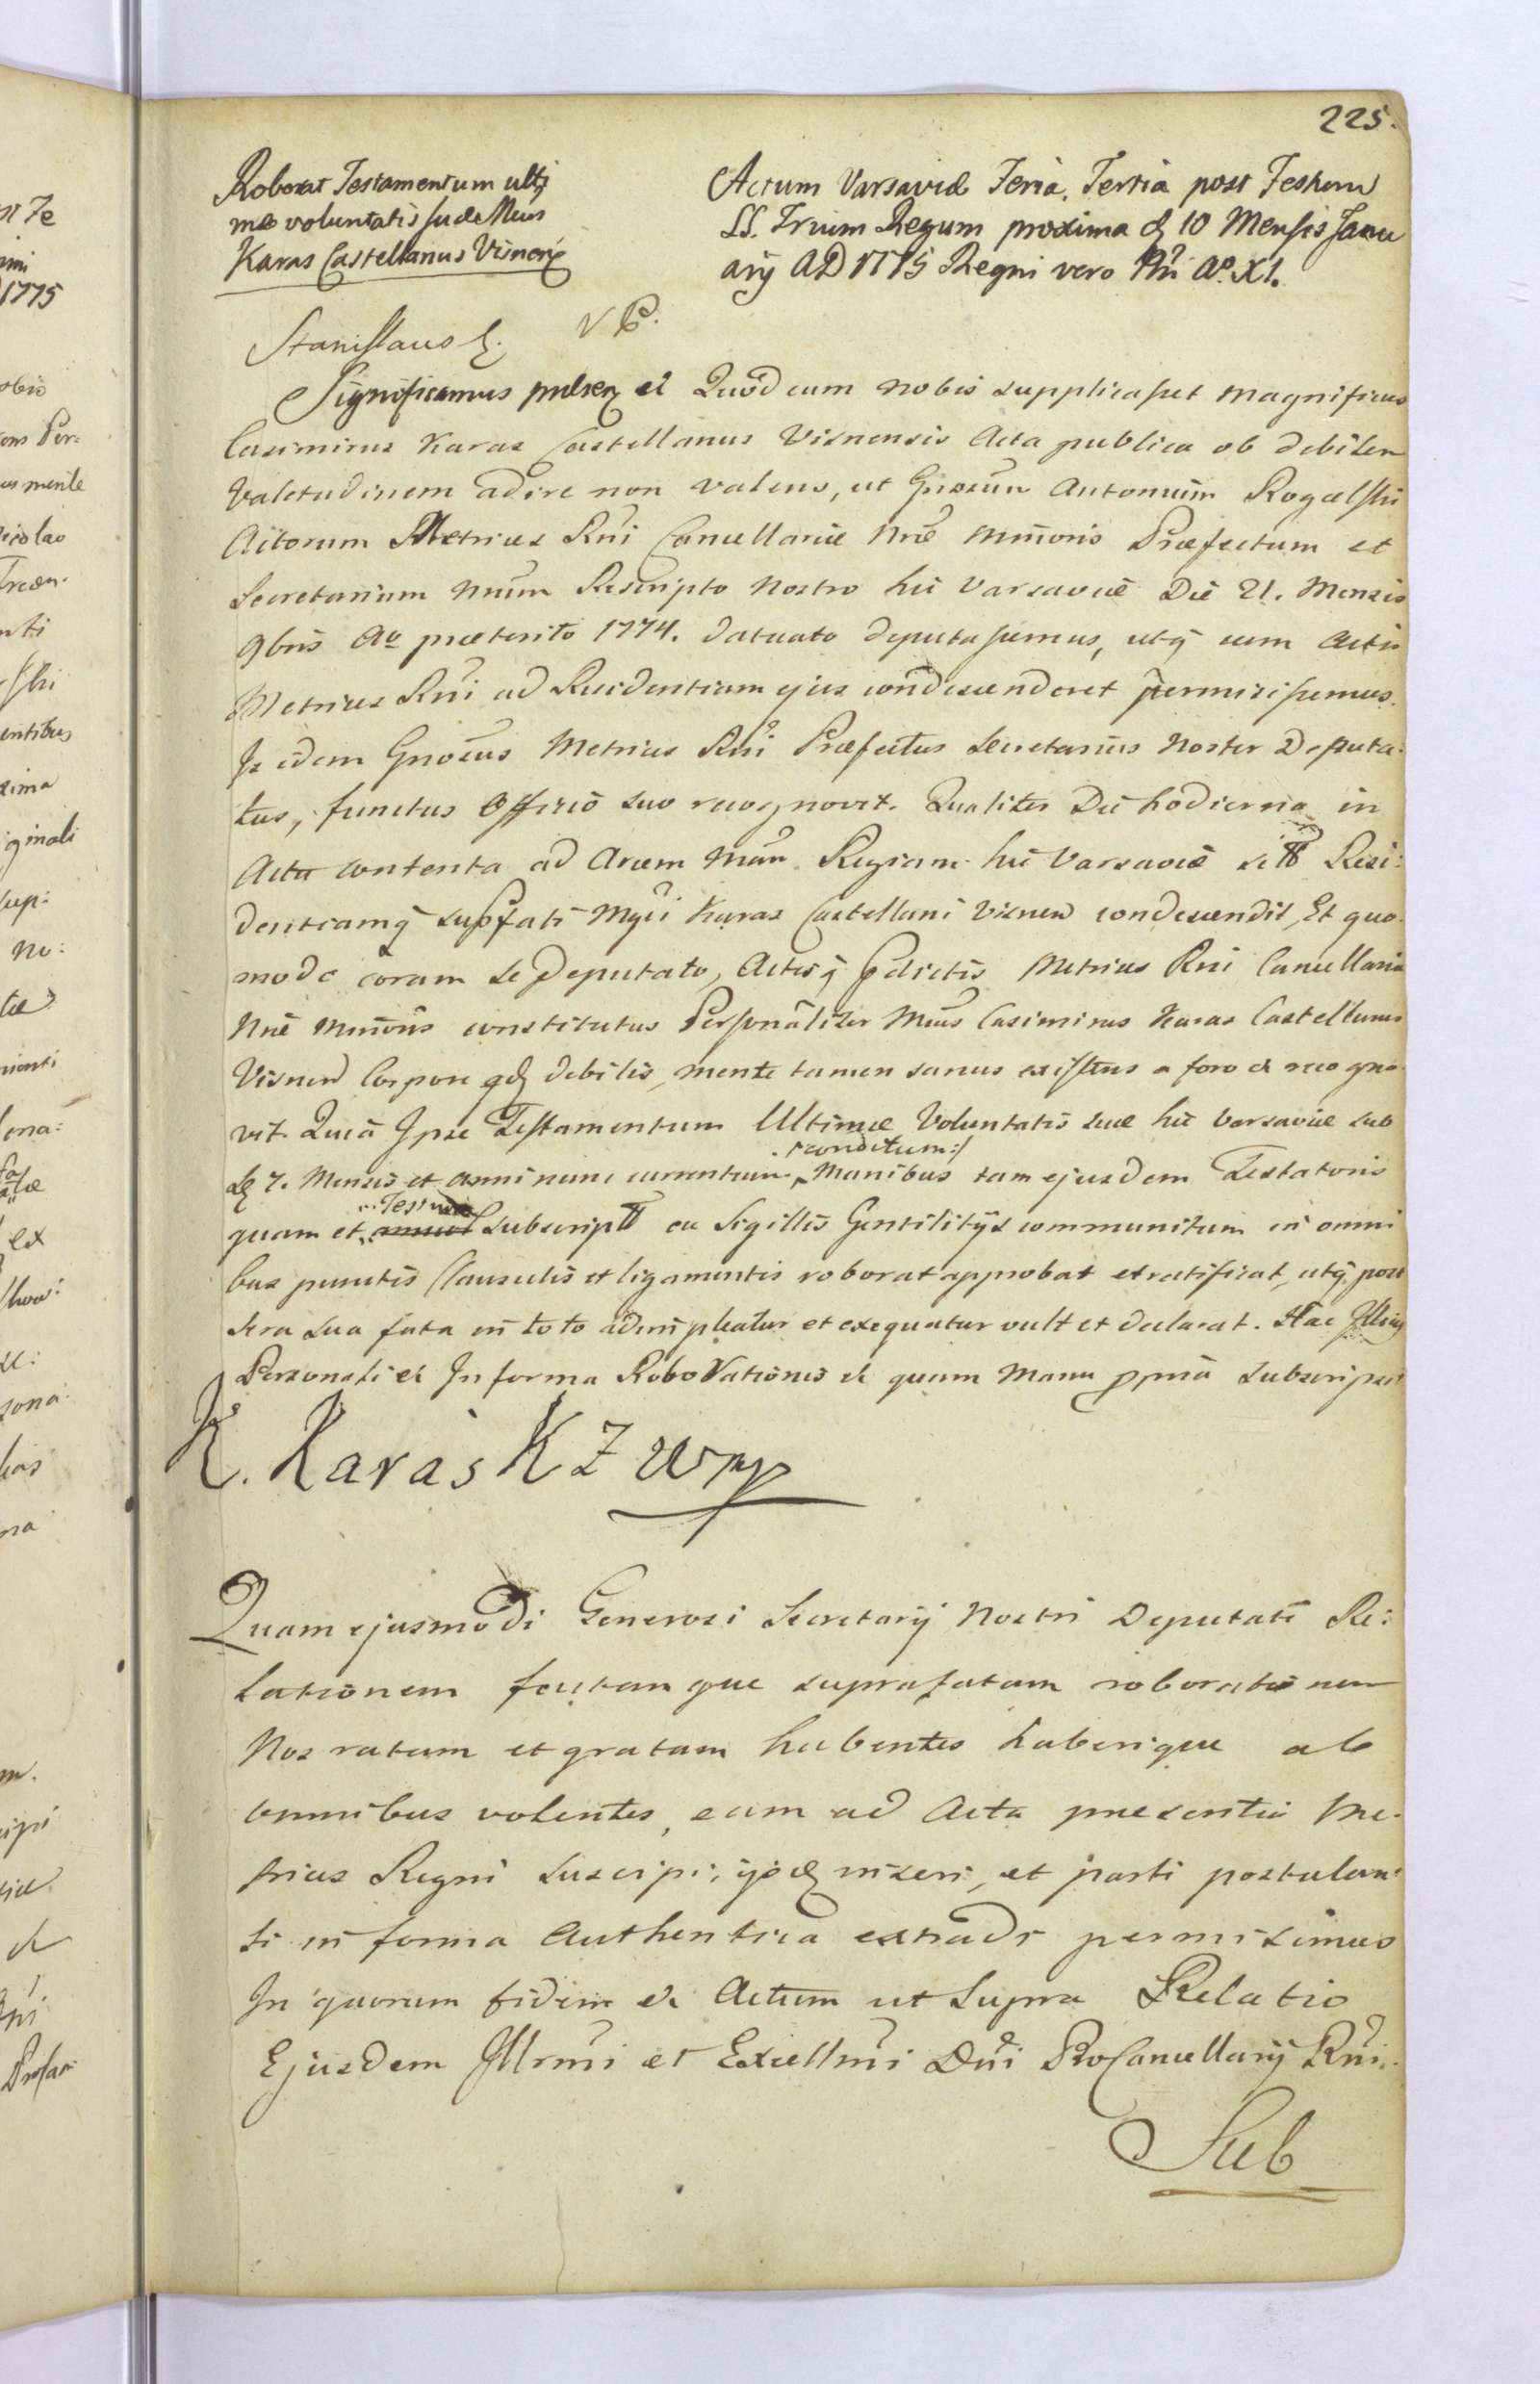 225.
Roborat Testamentum ulti
mæ voluntatis suæ Mcus
Karas Castellanus Visnen
Actum Varsaviæ Feria Tertia post Festum
SS. Trium Regum proxima d 10 Mensis Janu
arij AD 1775 Regni vero Nri Ao. XI.
Stanislaus &. VC.
Significamus pntbz et Quod cum nobis supplicasset Magnificus
Casimirus Karas Castellanus Visnensis Acta publica ob debilem
Valetudinem adire non valens, ut Gnosum Antonium Rogalski
Actorum Metrices Rni Cancellariæ Nræ Minoris Præfectum et
Secretarium Nrum Rescripto Nostro hic Varsaviæ Die 21. Mensis
9bris Ao præterito 1774. datuato deputassemus, utq cum Actis
Metrices Rni ad Residentiam ejus condescenderet permisissemus.
Is idem Gnosus Metrices Rni Præfectus Secretarius Noster Deputa:
tus, functus Officio suo recognovit. Qualiter Die hodierna in
Actu contenta ad Arcem Nram Regiam hic Varsaviæ Resi:
dentiamq supfati Mgci Karas Castellani Visnen condescendit, Et quo
modo coram se Deputato, Actisq pdictis Metrices Rni Cancellaria
Nræ Minoris constitutus Personaliter Mcus Casimirus Karas Castellanus
Visnen Corpore qd debilis, mente tamen sanus existens a foro & recogno
vit. Quia Ipse Testamentum Ultimæ Voluntatis suæ hic Varsaviæ sub
d 7. Mensis et anni nunc currentium /:conditum:/ Manibus tam ejusdem Testatoris
quam et Testium subscript ea Sigillis Gentilitijs communitum in omni
bus punctis Clausulis et ligamentis roborat approbat et ratificat, utq post
sera sua fata in toto adimpleatur et exequatur vult et declarat. Hac Illius
Personali et In forma Roborationis & quam Manu ppria subscripsit
K. Karaś K Z W mp
Quam ejusmodi Generosi Secretarij Nostri Deputati Re:
lationem factamque suprafatam roborationem
Nos ratam et gratam habentes haberique ab
omnibus volentes, eam ad Acta præsentia Me
trices Regni suscipi, ijsq inseri, et parti postulan
ti in forma Authentica extradi permisimus
In quorum fidem & Actum ut Supra Relatio
Ejusdem Illrmi et Excellmi Dni ProCancellarij Rni.
Sub